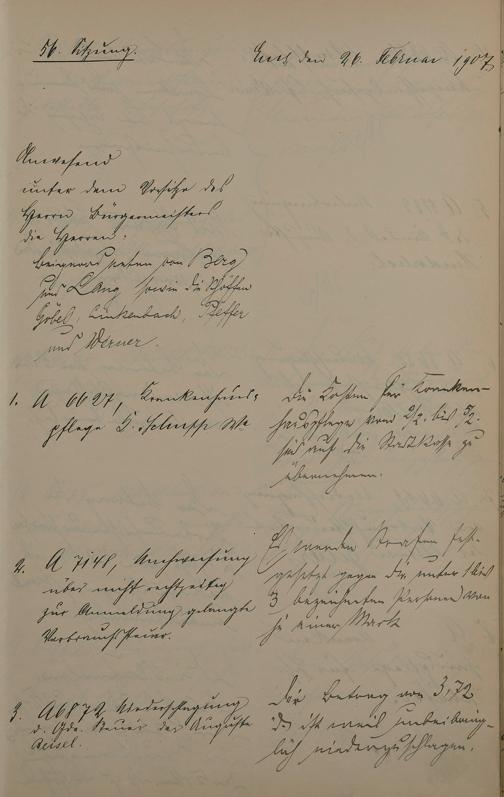 56. Sitzung.
Ems den 26. Februar 1907
Anwesend
unter dem Vorsitze des
Herrn Bürgermeisters
die Herren:
Beigeordneten von Berg
und Lang sowie die Schöffen
Göbel, Linkenbach, Pfeffer
und Werner.
1. A 6627, Krankenhaus-
pflege H. Schupp We
Die Kosten für Kranken-
hauspflege vom 2/2. bis 5/2.
sind auf die Stadtkasse zu
übernehmen.
2. A 7148, Nachweisung
über nicht rechtzeitig
zur Anmeldung gelangte
Verbrauchssteuer.
Es werden Strafen fest-
gesetzt gegen die unter 1 bis
3 bezeichneten Personen von
je einer Mark
3. A 6872 Niederschlagung
d. Gde. Steuer der Auguste
Geisel.
Der Betrag von 3,72
ist weil unbeibring-
lich niederzuschlagen.